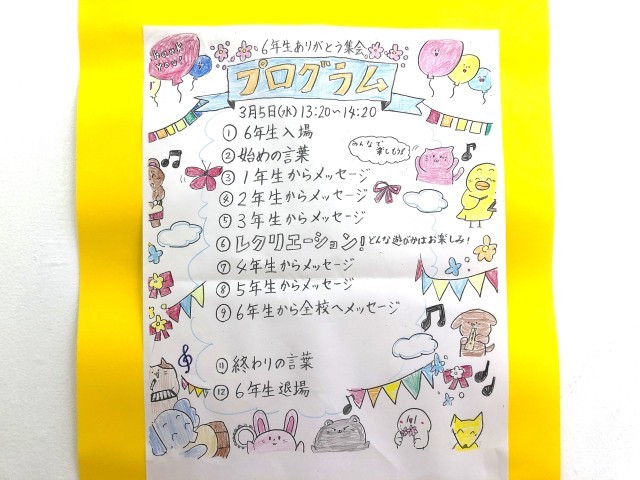 Thank you!
6年生ありがとう集会
プログラム
3月5日(水)13:20〜14:20
①6年生入場
②始めの言葉
みんなで楽しもう!
③1年生からメッセージ
④2年生からメッセージ
⑤3年生からメッセージ
⑥レクリエーション!どんな遊びかはお楽しみ!
⑦4年生からメッセージ
⑧5年生からメッセージ
⑨6年生から全校へメッセージ
⑪終わりの言葉
⑫6年生退場